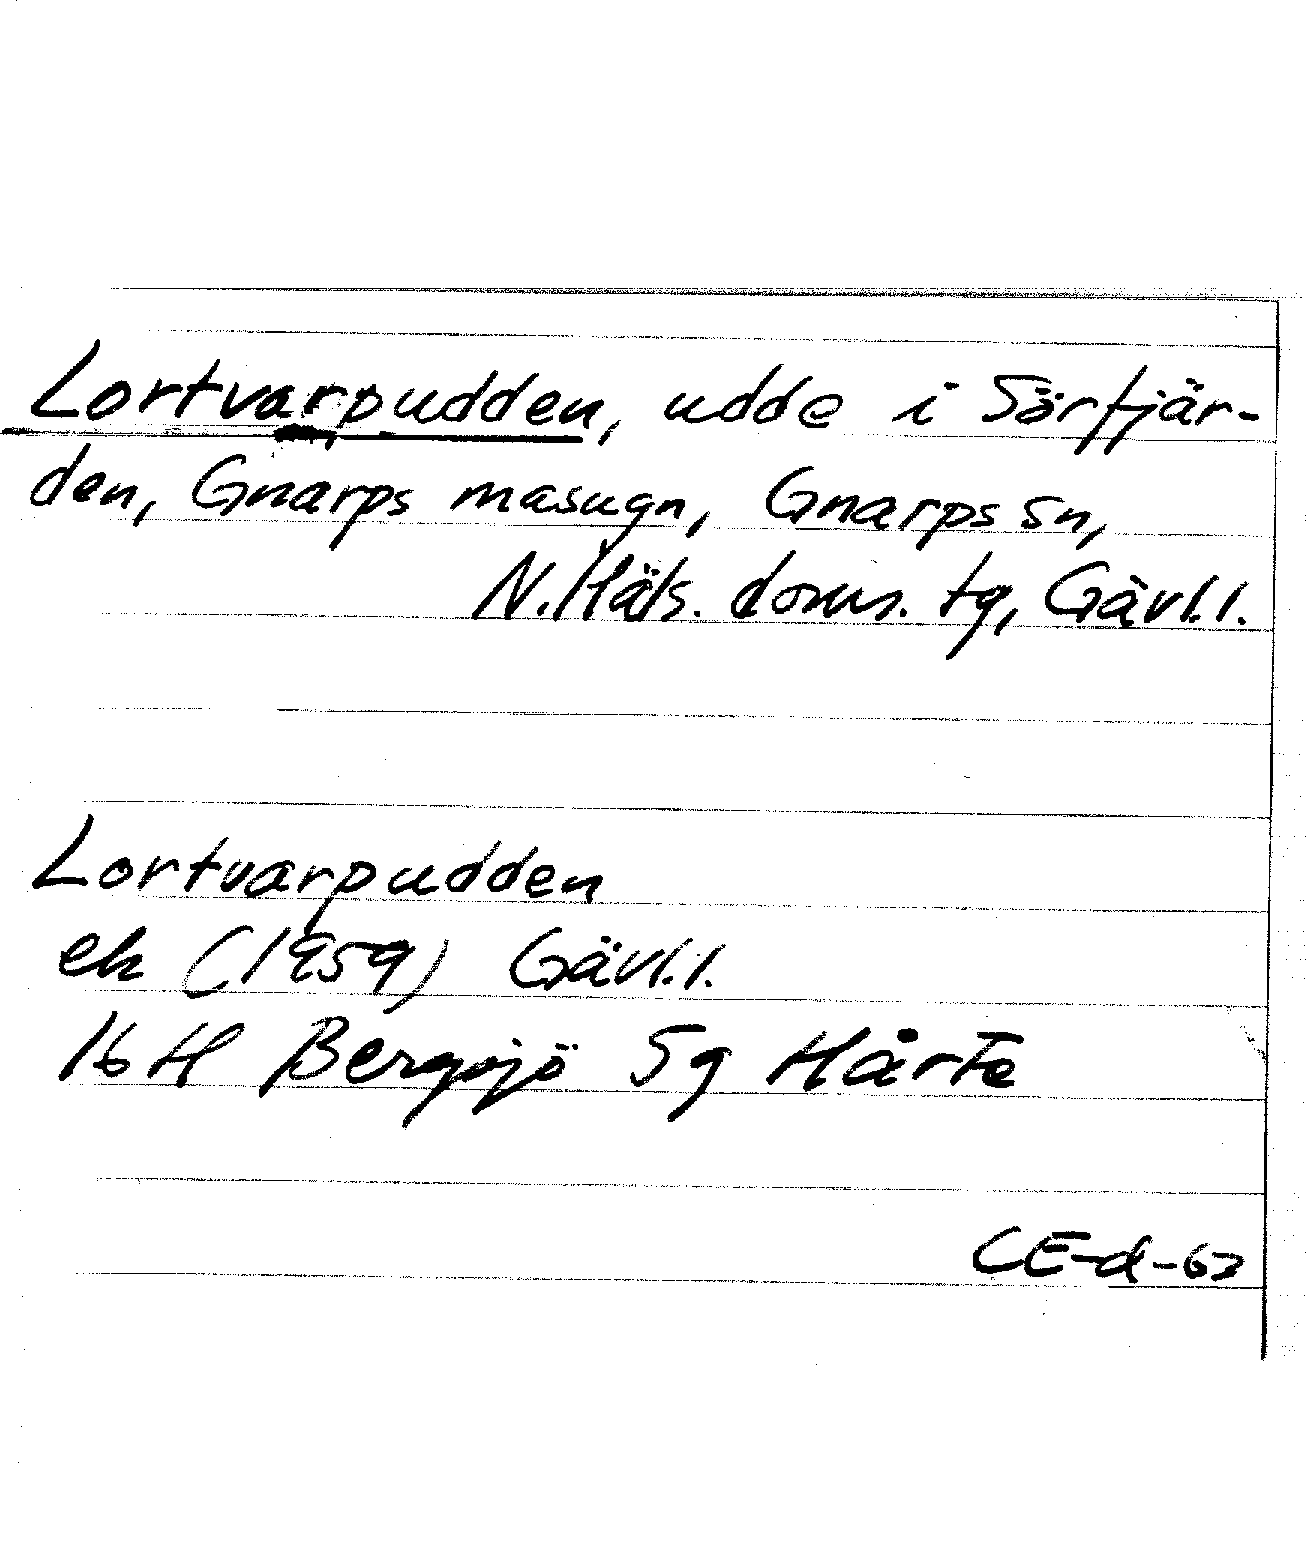 Lortvarpudden, udde i Sörfjär-
den, Gnarps masugn, Gnarps sn,
N. Häls. doms. tg, Gävl. l.
Lortvarpudden
ek (1959) Gävl. l.
16 H Bergsjö 5g Hårte
CE-d-62